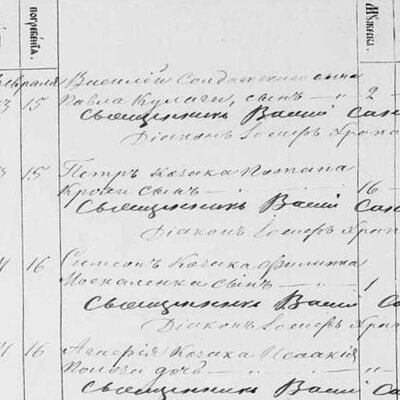 погребенія.
Мужеска
евраля
Василій Солдатскаго сына
3 15 Павла Кулаги, сынъ 2
Священникъ Васи
Діаконъ Іосифъ Храпа
3 15 Петръ Козака Потапа
сынъ 16
Священникъ Васи
Діаконъ Іосифъ Храп
4 16 Симеонъ Козака Филиппа
Москаленка сынъ 1
Священникъ Васи
Діаконъ Іосифъ Хра
4 16 Агафія Козака Исаакія
дочь
Священникъ Васи